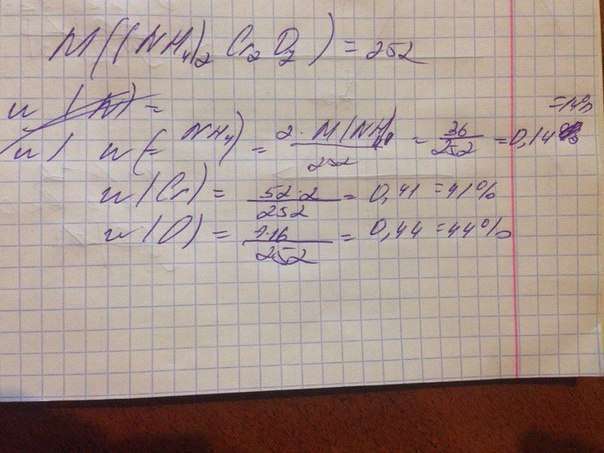 M((NH₄)₂Cr₂O₇) = 252
w (N) =
w ( NH₄) = 2·M(NH₄) / 252 = 36 / 252 = 0,14 = 14%
w (Cr) = 52·2 / 252 = 0,41 = 41%
w (O) = 7·16 / 252 = 0,44 = 44%